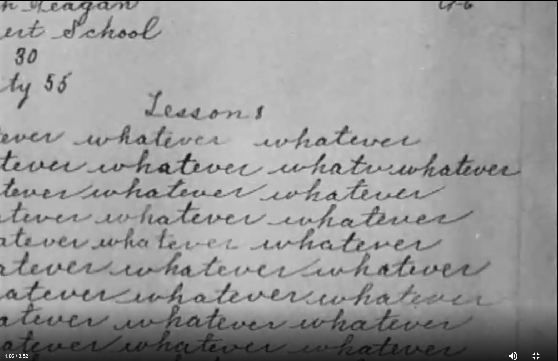 Reagan 96
ert School
30
ty 55
Lesson 8
tever whatever whatever
tever whatever whatv whatever
tever whatever whatever
atever whatever whatever
atever whatever whatever
atever whatever whatever
hatever whatever whatever
atever whatever whatever
hatever whatever whatever